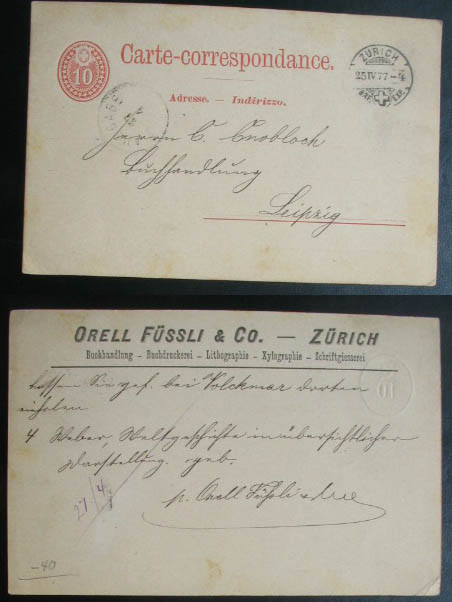 10
Carte-correspondance.
ZÜRICH
25 IV 77 - 4
BRF. EXP.
Adresse. — Indirizzo.
Herrn C. Cnobloch
Buchhandlung
Leipzig
ORELL FÜSSLI & CO. — ZÜRICH
Buchhandlung – Buchdruckerei – Lithographie – Xylographie – Schriftgiesserei
Lassen Sie gef. bei Volckmar dorten
einholen
4 Weber, Weltgeschichte in übersichtlicher
Darstellung. geb.
p. Orell Füssli & Cie
27/4
-40